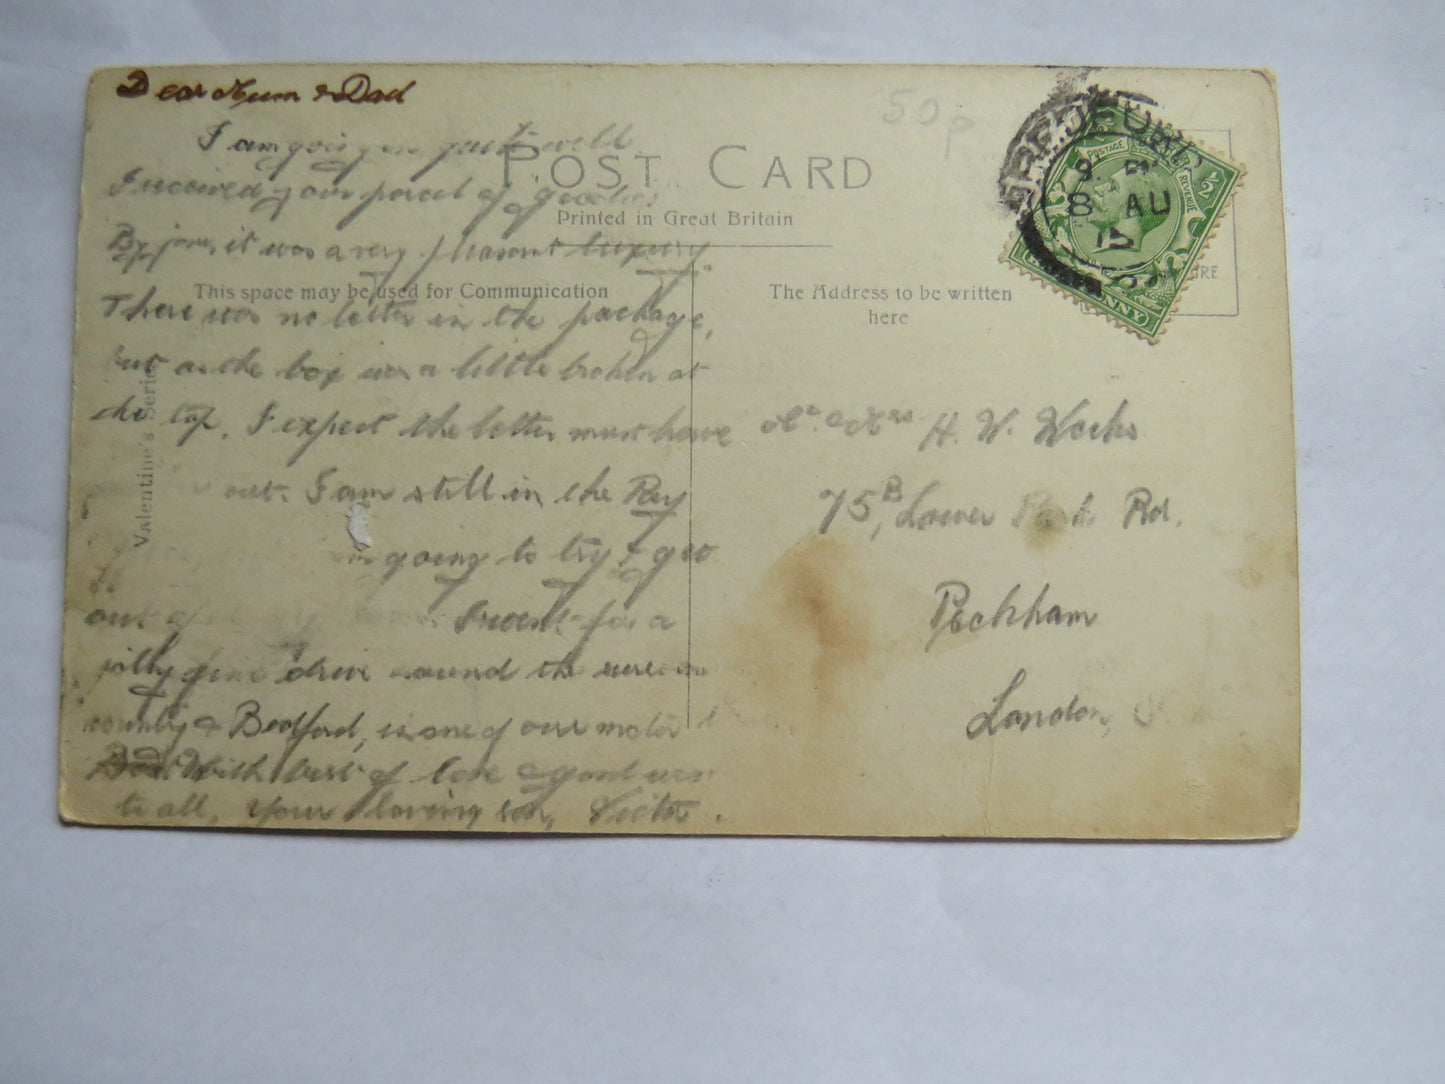 Dear Mum & Dad
I am going on quite well
I received your parcel of goodies
By jove, it was a very pleasant luxury.
There was no letter in the package,
but as the box was a little broken at
the top, I expect the letter must have
out. I am still in the
going to try & get
out of I went for a
jolly fine drive around the
county & Bedford, in one of our motor
With best of love & good
to all, your loving son, Victor.
50p
POST CARD
Printed in Great Britain
This space may be used for Communication
The Address to be written
here
Valentine's Series
BEDFORD
8 AU
15
POSTAGE
REVENUE
1/2
H. W. Weeks
75B, Lower Park Rd.
Peckham
London,